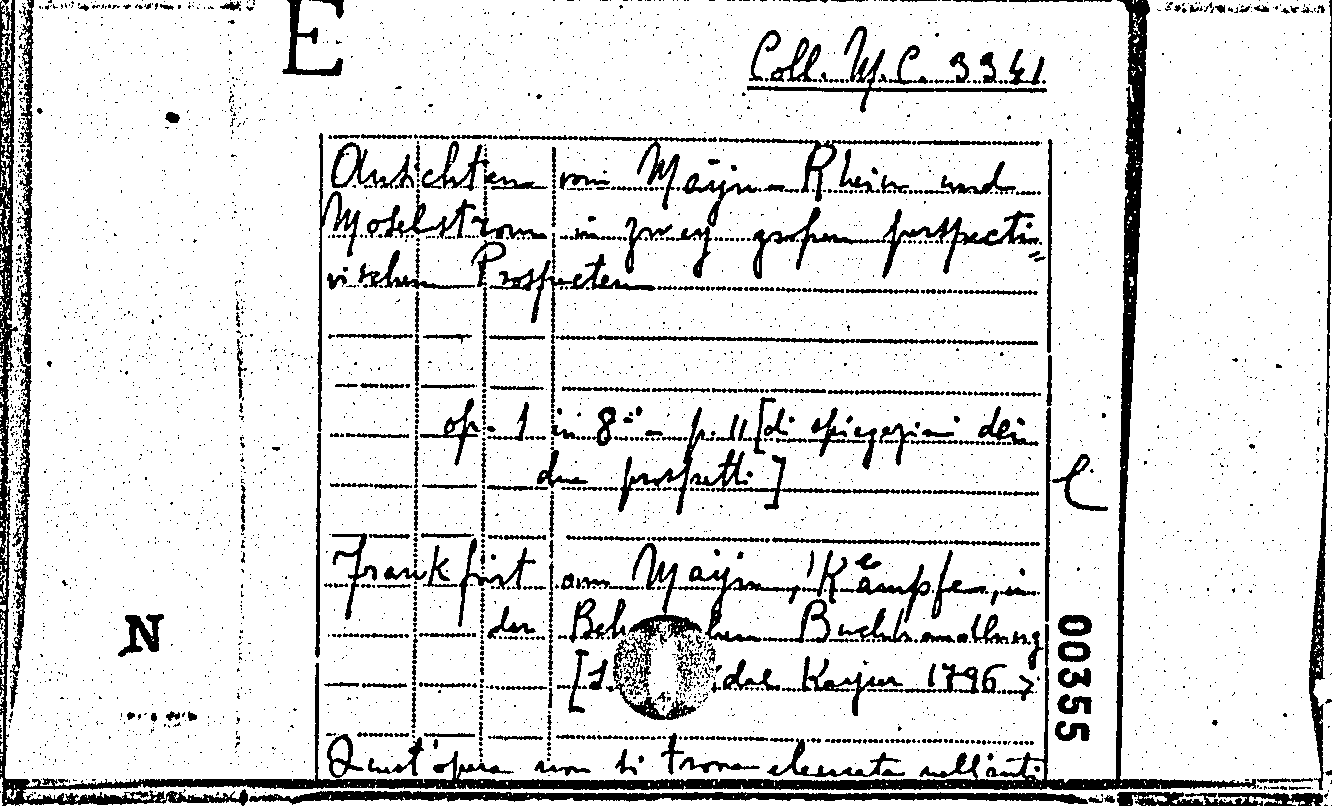 E
Coll. M.C. 3341
Ansichten vom Mayn- Rhein und
Moselstrom in zwey großen perspecti=
vischen Prospecten
op. 1 in 8° - p. 11 [di spiegazioni dei
due prospetti]
Frankfurt am Mayn, Kämpfe, in
der Buchhandlung
Kayser 1796 >
Quest'opera non si trova elencata nell'anti
N
00355